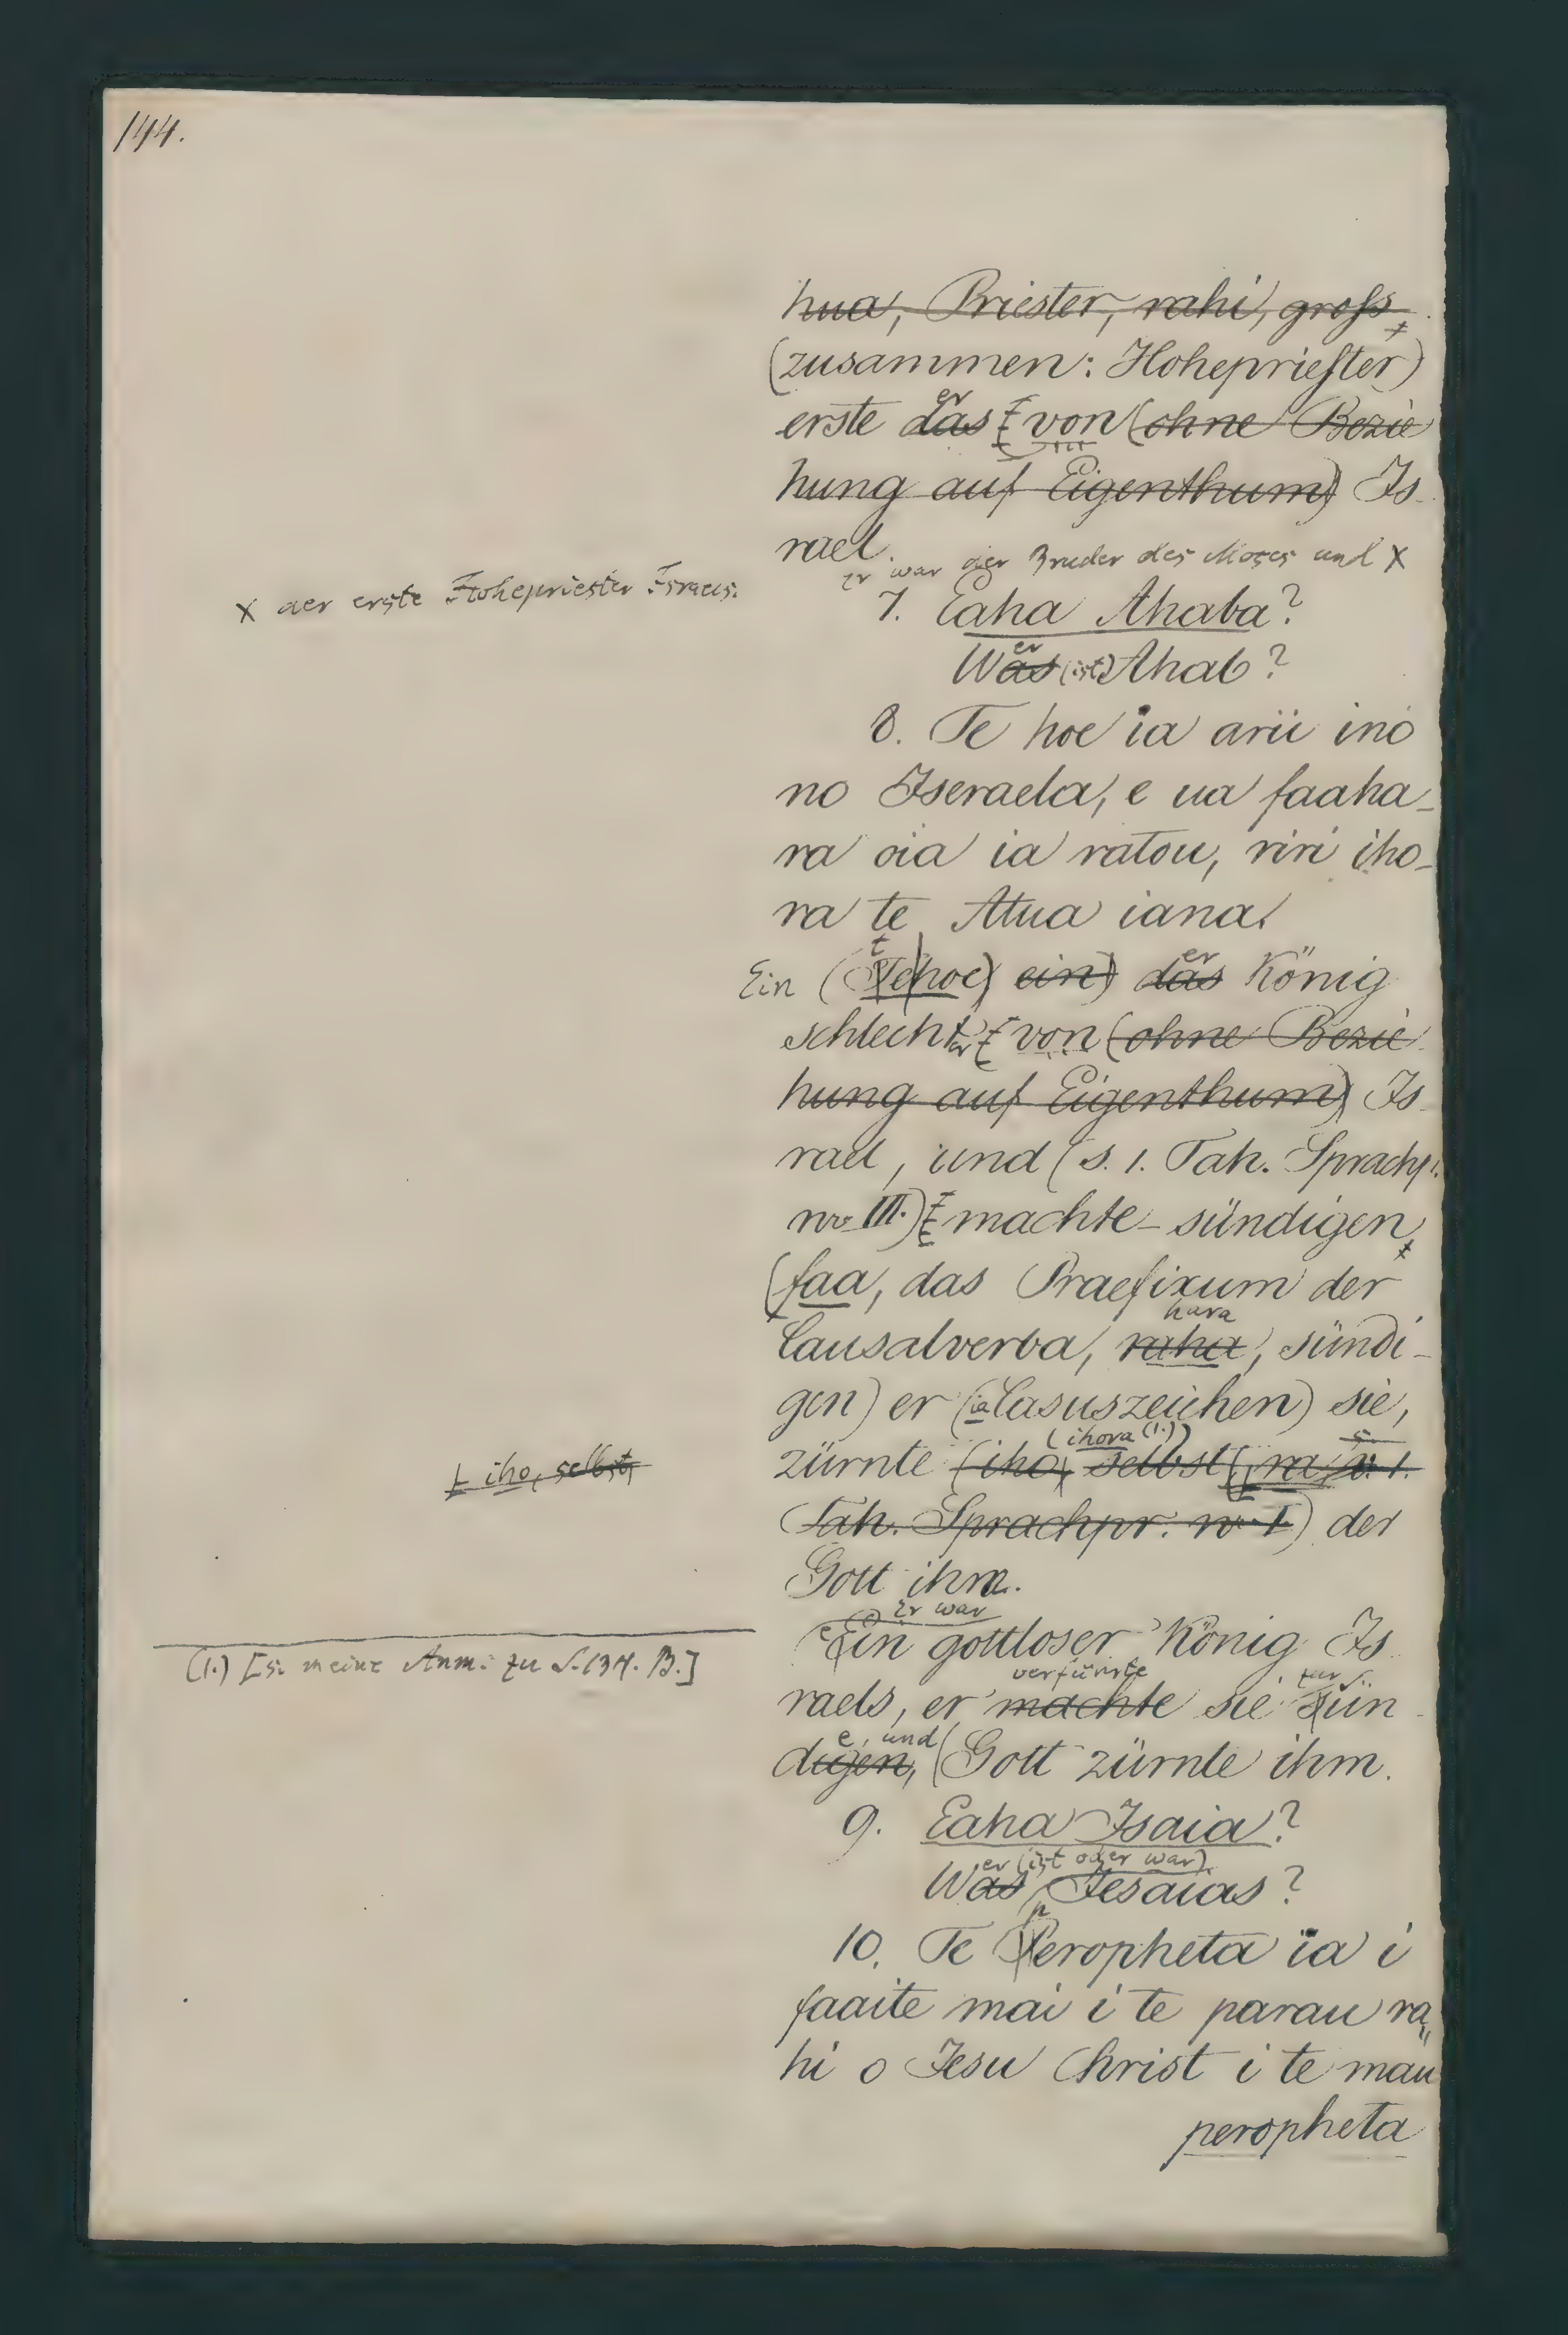 144.
hua, Priester, rahi, gross,
(zusammen: Hohepriester)
er
erste das [von (ohne Bezie
hung auf Eigenthum) Is
rael.
Er war der Bruder des Moses und X
X der erste Hohepriester Israels.
7. Eaha Ahaba?
er
Was (ist) Ahab?
8. Te hoe ïa arii ino
no Iseraela, e ua faaha-
ra oia ia ratou, riri iho-
ra te Atua iana.
t er
Ein (Te hoe) ein) das König
schlechter [von (ohne Bezie
hung auf Eigenthum) Is
rael, und (s. 1. Tah. Sprachp.
nr III.) [machte-sündigen,
(faa, das Praefixum der
hara
Causalverba, raha, sündi-
gen) er (ia Casuszeichen) sie,
(ihora (1.))
zürnte (iho, selbst, [ra, s. 1.
[iho, selbst,
Tah. Sprachpr. nr I) der
Gott ihm.
(e) Er war
Ein gottloser König Is
verführte zur S.
raels, er machte sie Sün
e, und
digen, Gott zürnte ihm.
(1.) [s. meine Anm. zu S. 134. B.]
9. Eaha Isaia?
er (ist oder war)
Was Jesaias?
p
10. Te Peropheta ïa i
faaite mai i te parau ra
hi o Iesu Christ i te mau
peropheta